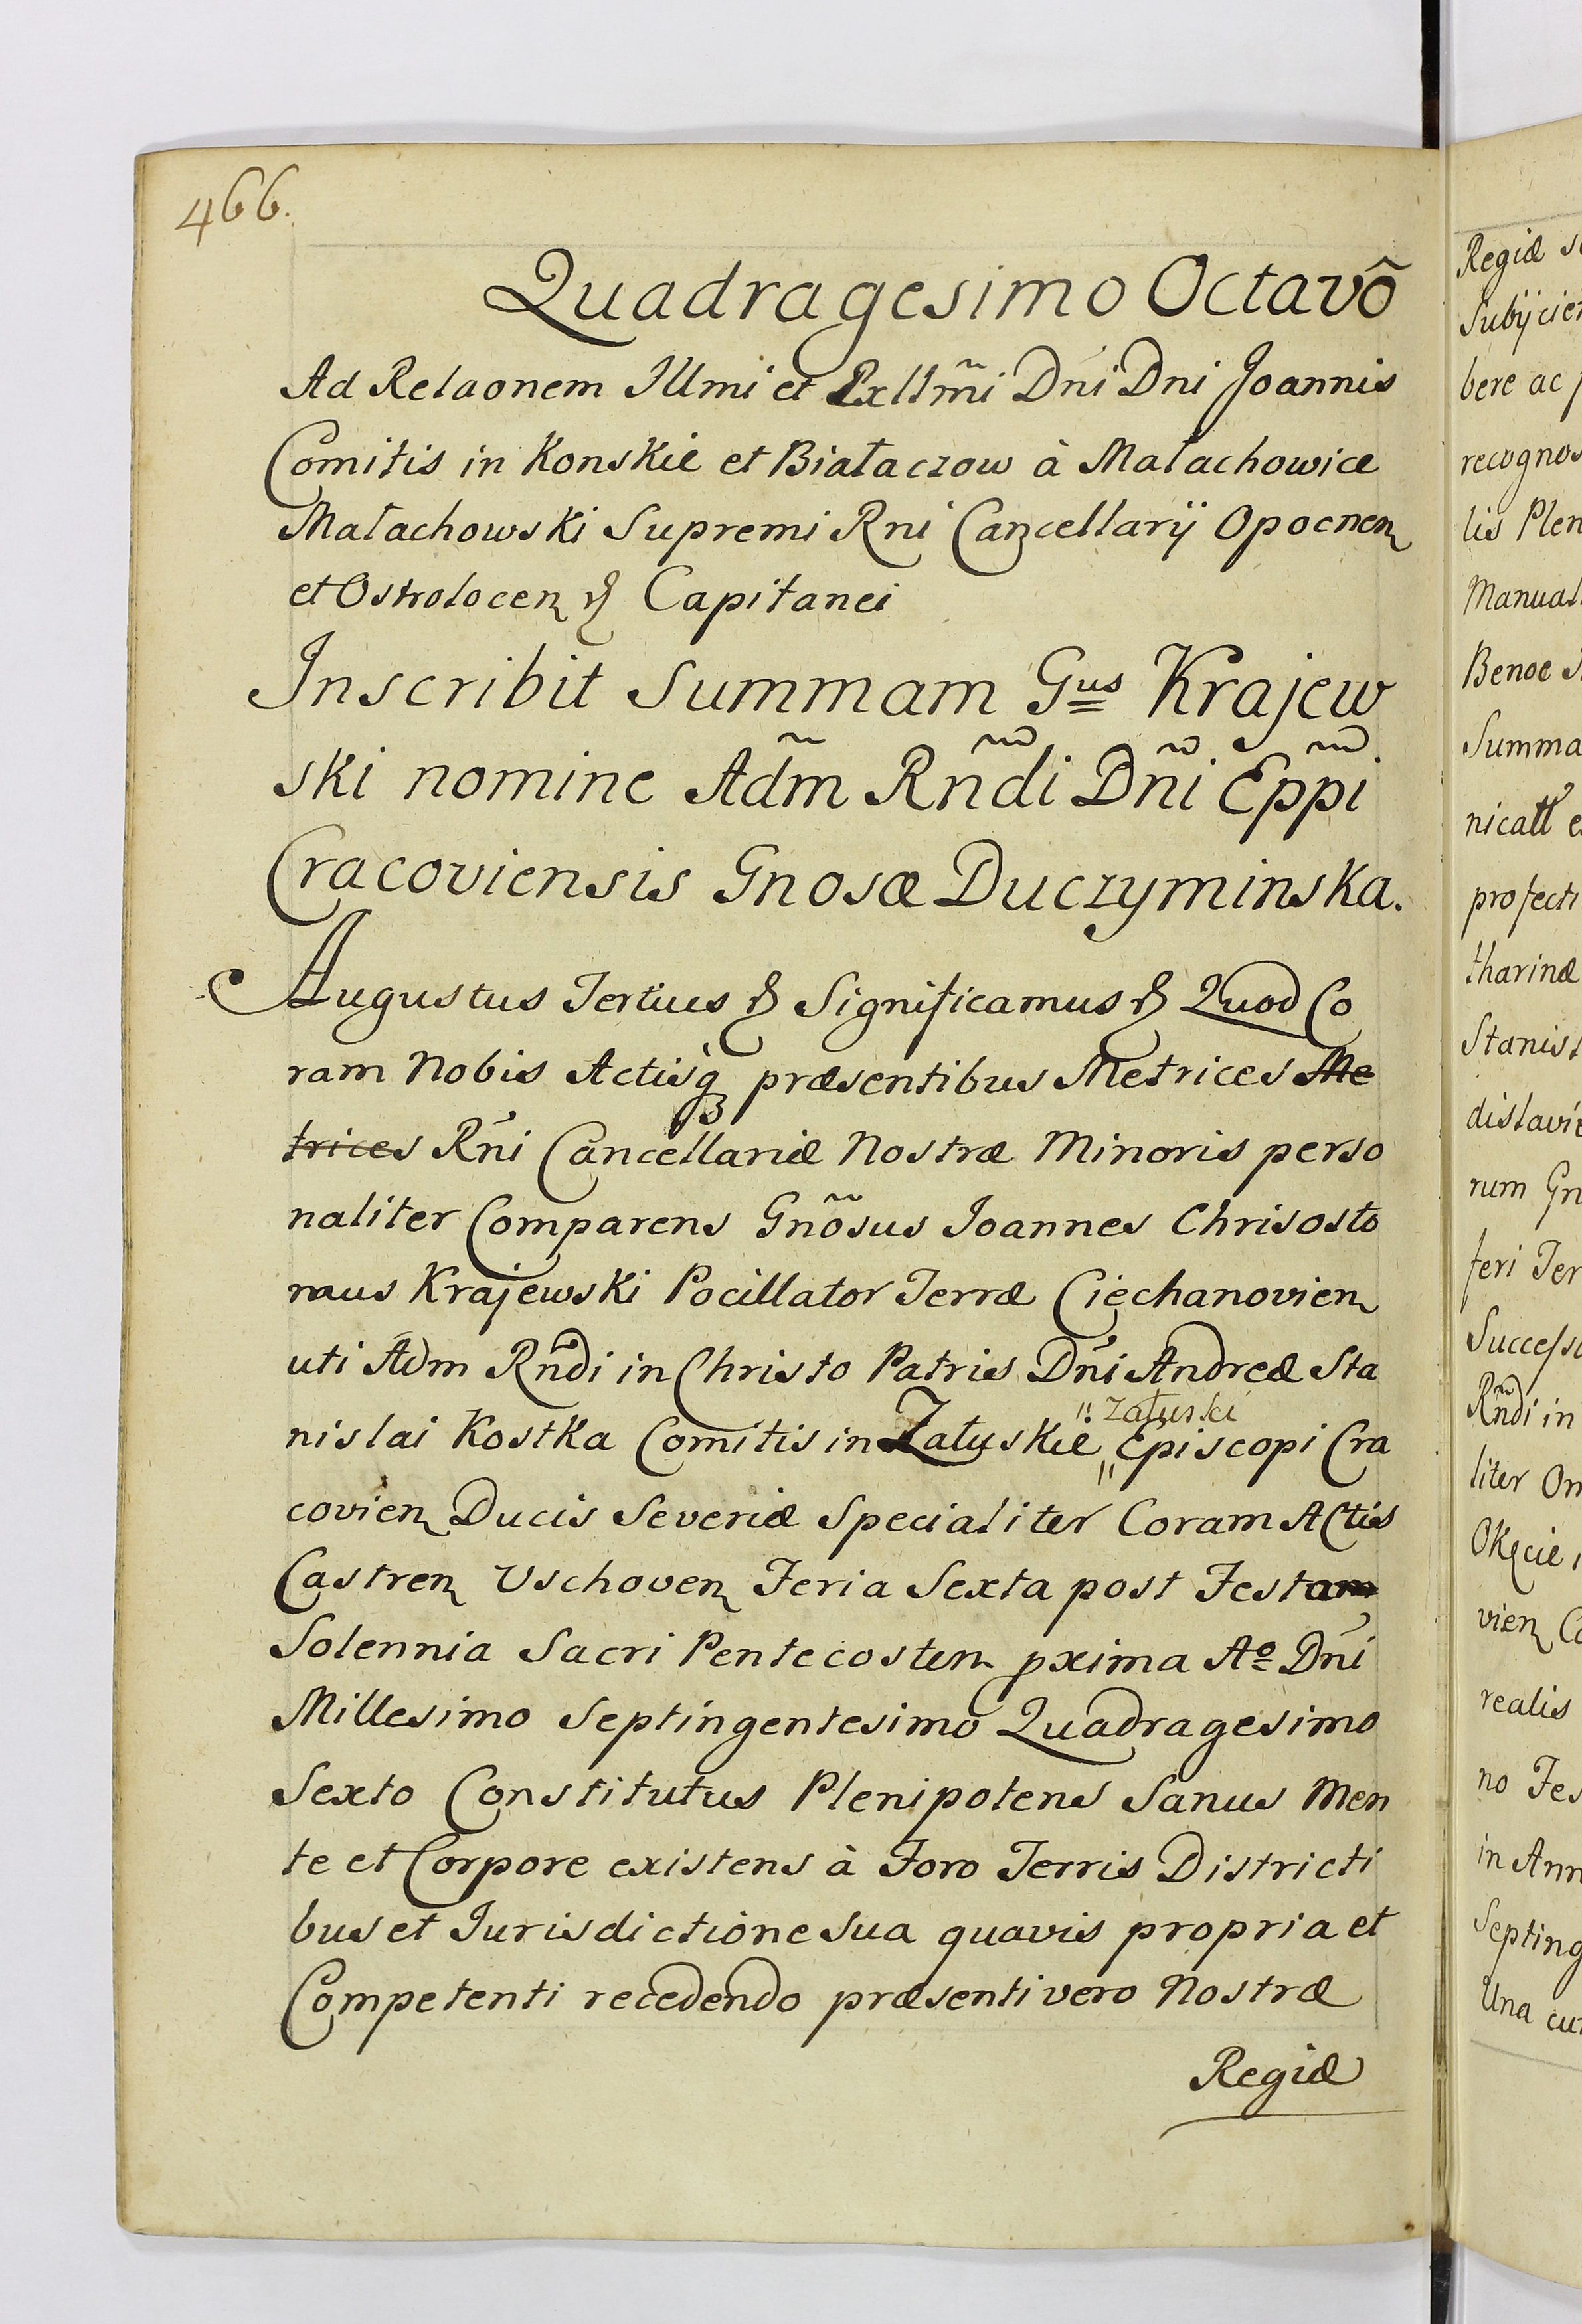 466.
Quadragesimo Octavõ
Ad Relaonem Illmi et Exllm̃i Dni Dni Joannis
Comitis in Konskie et Białaczow à Małachowice
Małachowski Supremi Rni Cancellarij Opocnen
et Ostrołocen Capitanei
Inscribit Summam Gus Krajew
ski nomine Adm̃ Rñdi Dñi Epp̃i
Cracoviensis Gnosæ Duczyminska.
Augustus Tertius Significamus Quod Co
ram Nobis Actisq præsentibus Metrices Me
trices Rni Cancellariæ Nostræ Minoris perso
naliter Comparens Gnõsus Joannes Chrisosto
mus Krajewski Pocillator Terræ Ciechanovien
uti Adm Rñdi in Christo Patris Dni Andreæ Sta
Załuski
nislai Kostka Comitis in Załuskie " Episcopi Cra
covien Ducis Severiæ Specialiter Coram Actis
Castren Uschoven Feria Sexta post Festam
Solennia Sacri Pentecosten pxima Ao Dni
Millesimo Septingentesimo Quadragesimo
Sexto Constitutus Plenipotens Sanus Men
te et Corpore existens à Foro Terris Districti
bus et Jurisdictione Sua quavis propria et
Competenti recedendo præsenti vero Nostræ
Regiæ
Regiæ
Subijcie
bere ac
recognos
lis Plen
Manual
Benoe
Summa
nicatt
profecti
tharinæ
Stanisł
disłavi
rum Gn
feri Ter
Successo
Rñdi in
liter Om
Okęcie
vien Co
realis
no Fes
in Ann
Septing
Una cu